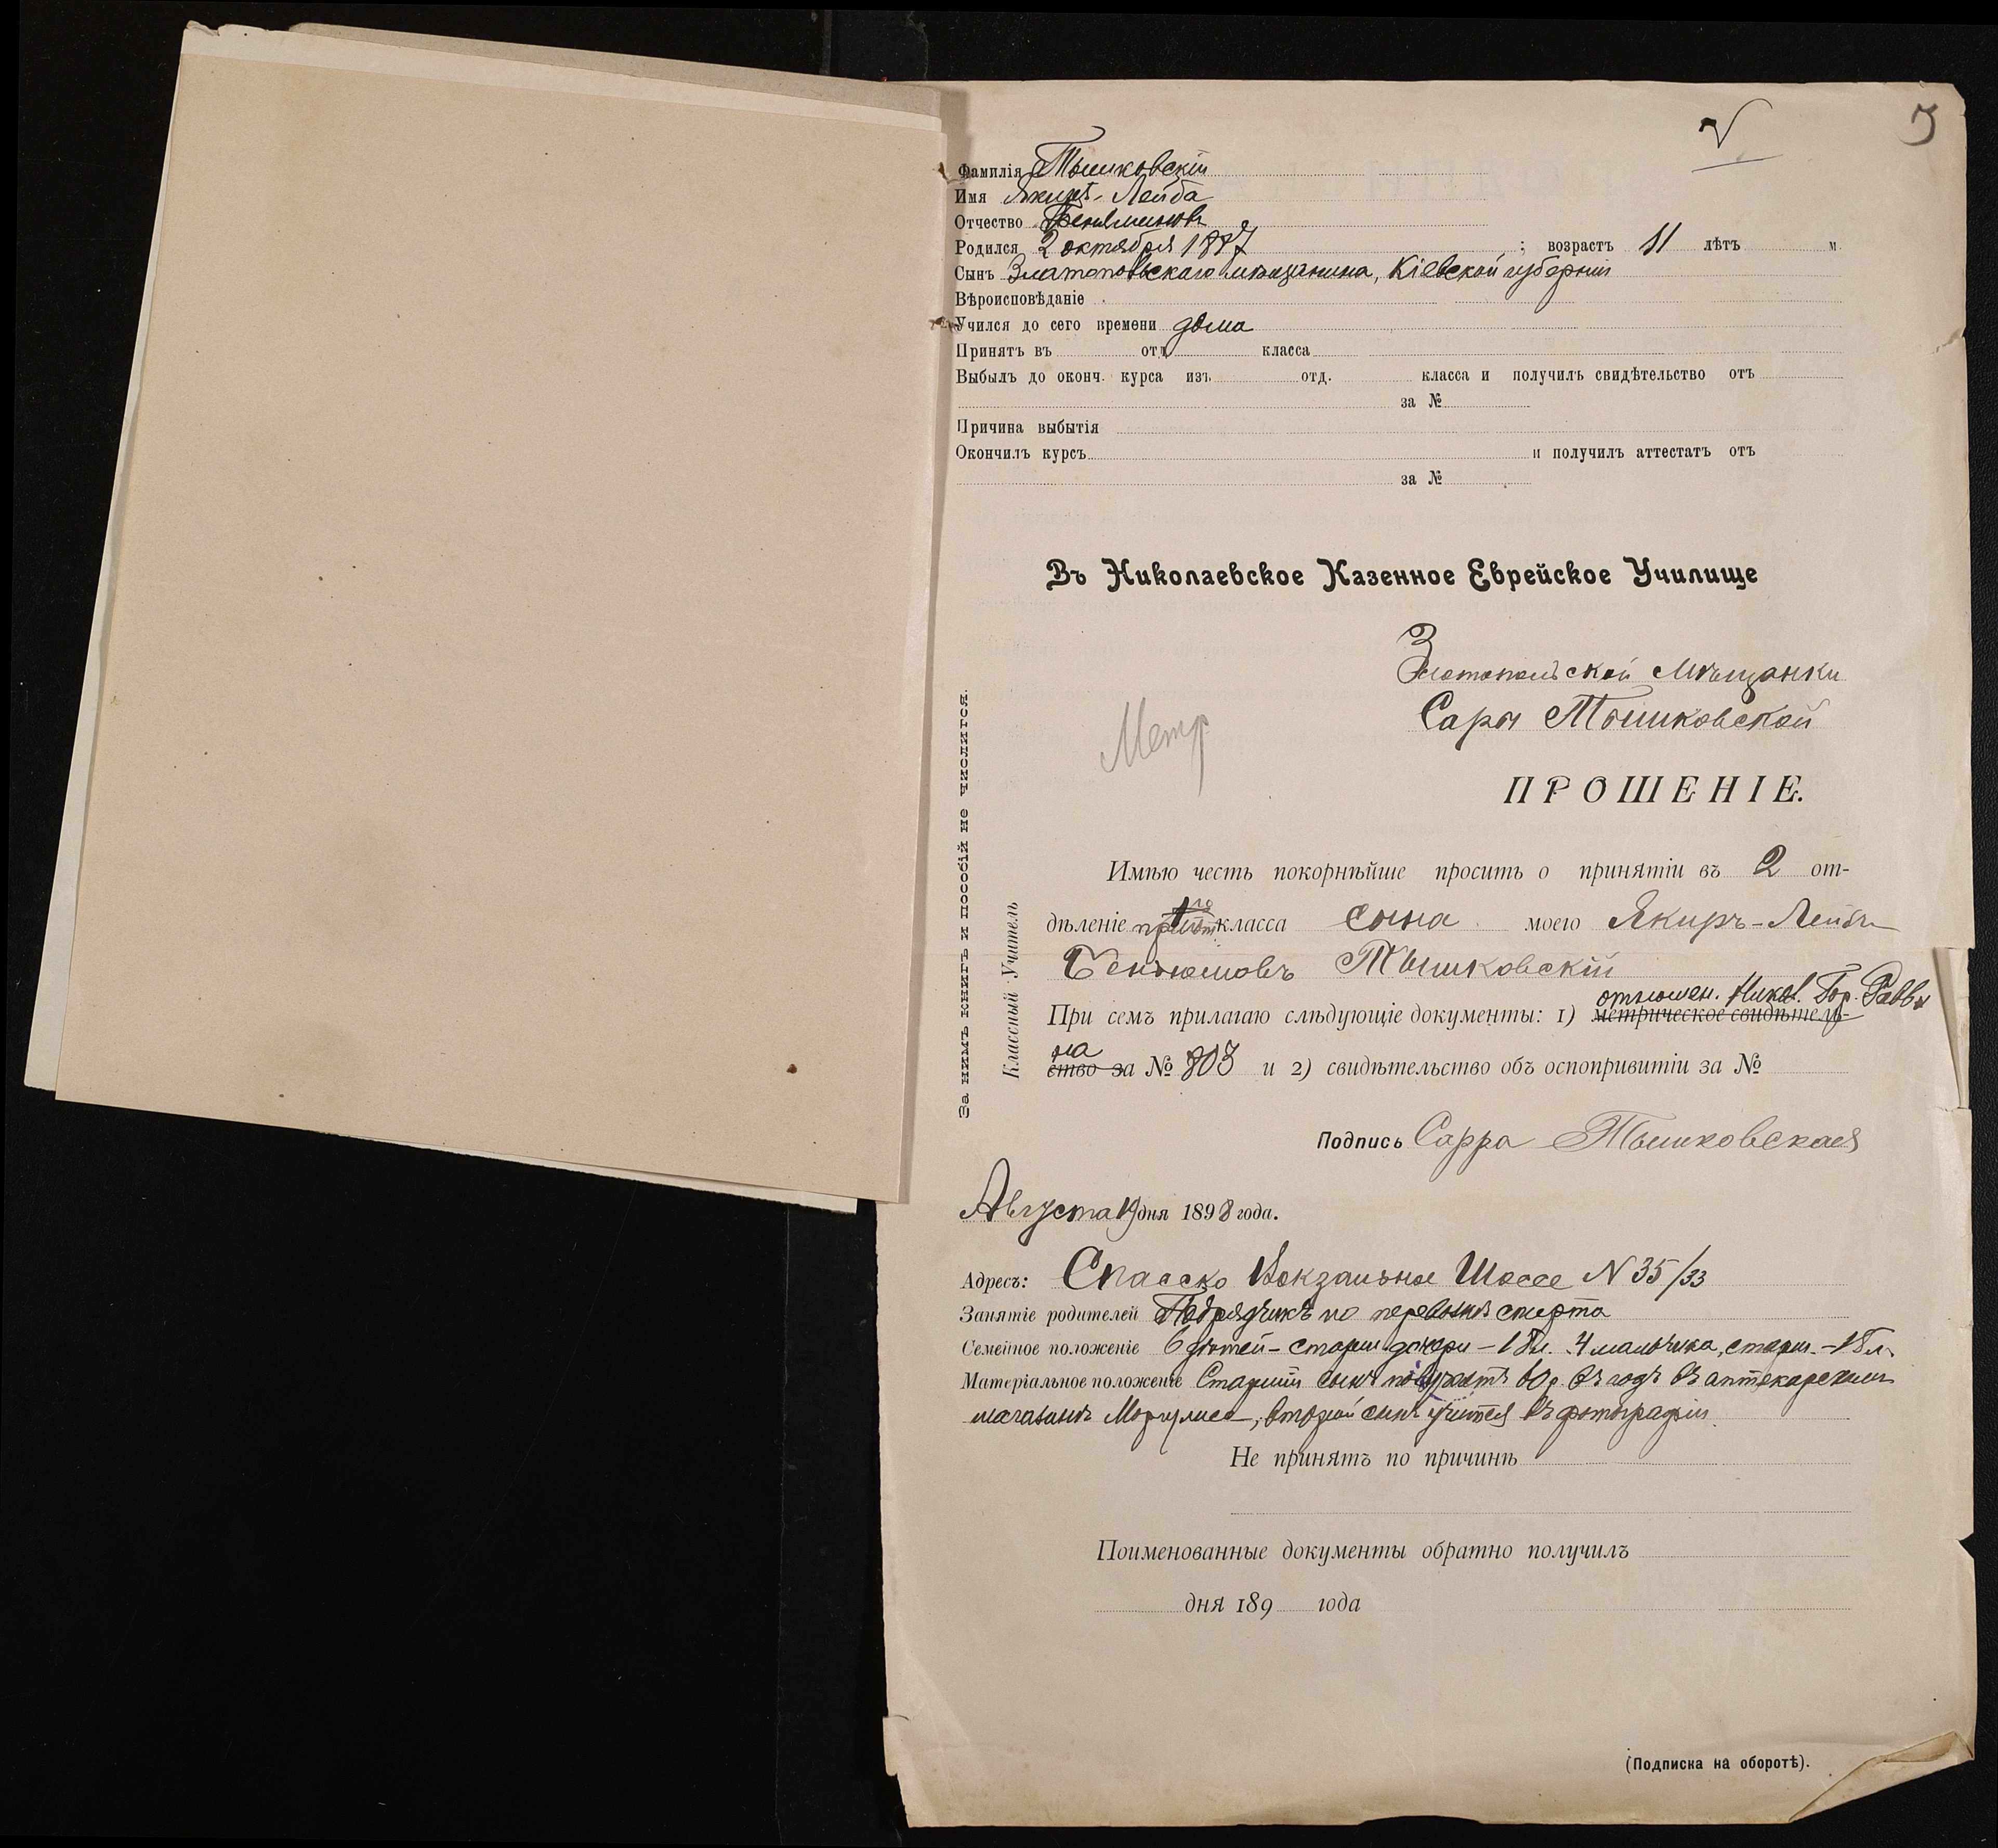 3
Фамилія Тышковскій
Имя Якиръ-Лейба
Отчество Беньяминовъ
Родился 2 октября 1887 ; возрастъ 11 лѣтъ м.
Сынъ Златопольскаго мѣщанина, Кіевской губерніи
Вѣроисповѣданіе
Учился до сего времени дома
Принятъ въ отд. класса
Выбылъ до оконч. курса изъ отд. класса и получилъ свидѣтельство отъ
за №
Причина выбытія
Окончилъ курсъ и получилъ аттестатъ отъ
за №
Въ Николаевское Казенное Еврейское Училище
Златопольской Мѣщанки
Сары Тышковской
Метр
ПРОШЕНІЕ.
Имѣю честь покорнѣйше просить о принятіи въ 2 от-
дѣленіе класса сына моего Якиръ-Лейбъ
Беньюмовъ Тышковскій
отношен. Никол. Гор. Равви
При семъ прилагаю слѣдующіе документы: 1) метрическое свидѣтель-
на
ство за № 803 и 2) свидѣтельство объ оспопривитіи за №
Подпись Сарра Тышковская
За нимъ книгъ и пособій не числится.
Классный Учитель
Августа 19 дня 1898 года.
Адресъ: Спасско Вокзальное Шоссе N 35/33
Занятіе родителей Подрядчикъ по перевозкѣ спирта
Семейное положеніе 6 дѣтей - старш. дочери - 18 л. 4 мальчика, старш. - 18 л.
Матеріальное положеніе Старшій сынъ получаетъ 60 р. въ годъ въ аптекарскомъ
магазинѣ Моргулиса, второй сынъ учится въ фотографіи.
Не принятъ по причинѣ
Поименованные документы обратно получилъ
дня 189 года
(Подписка на оборотѣ).